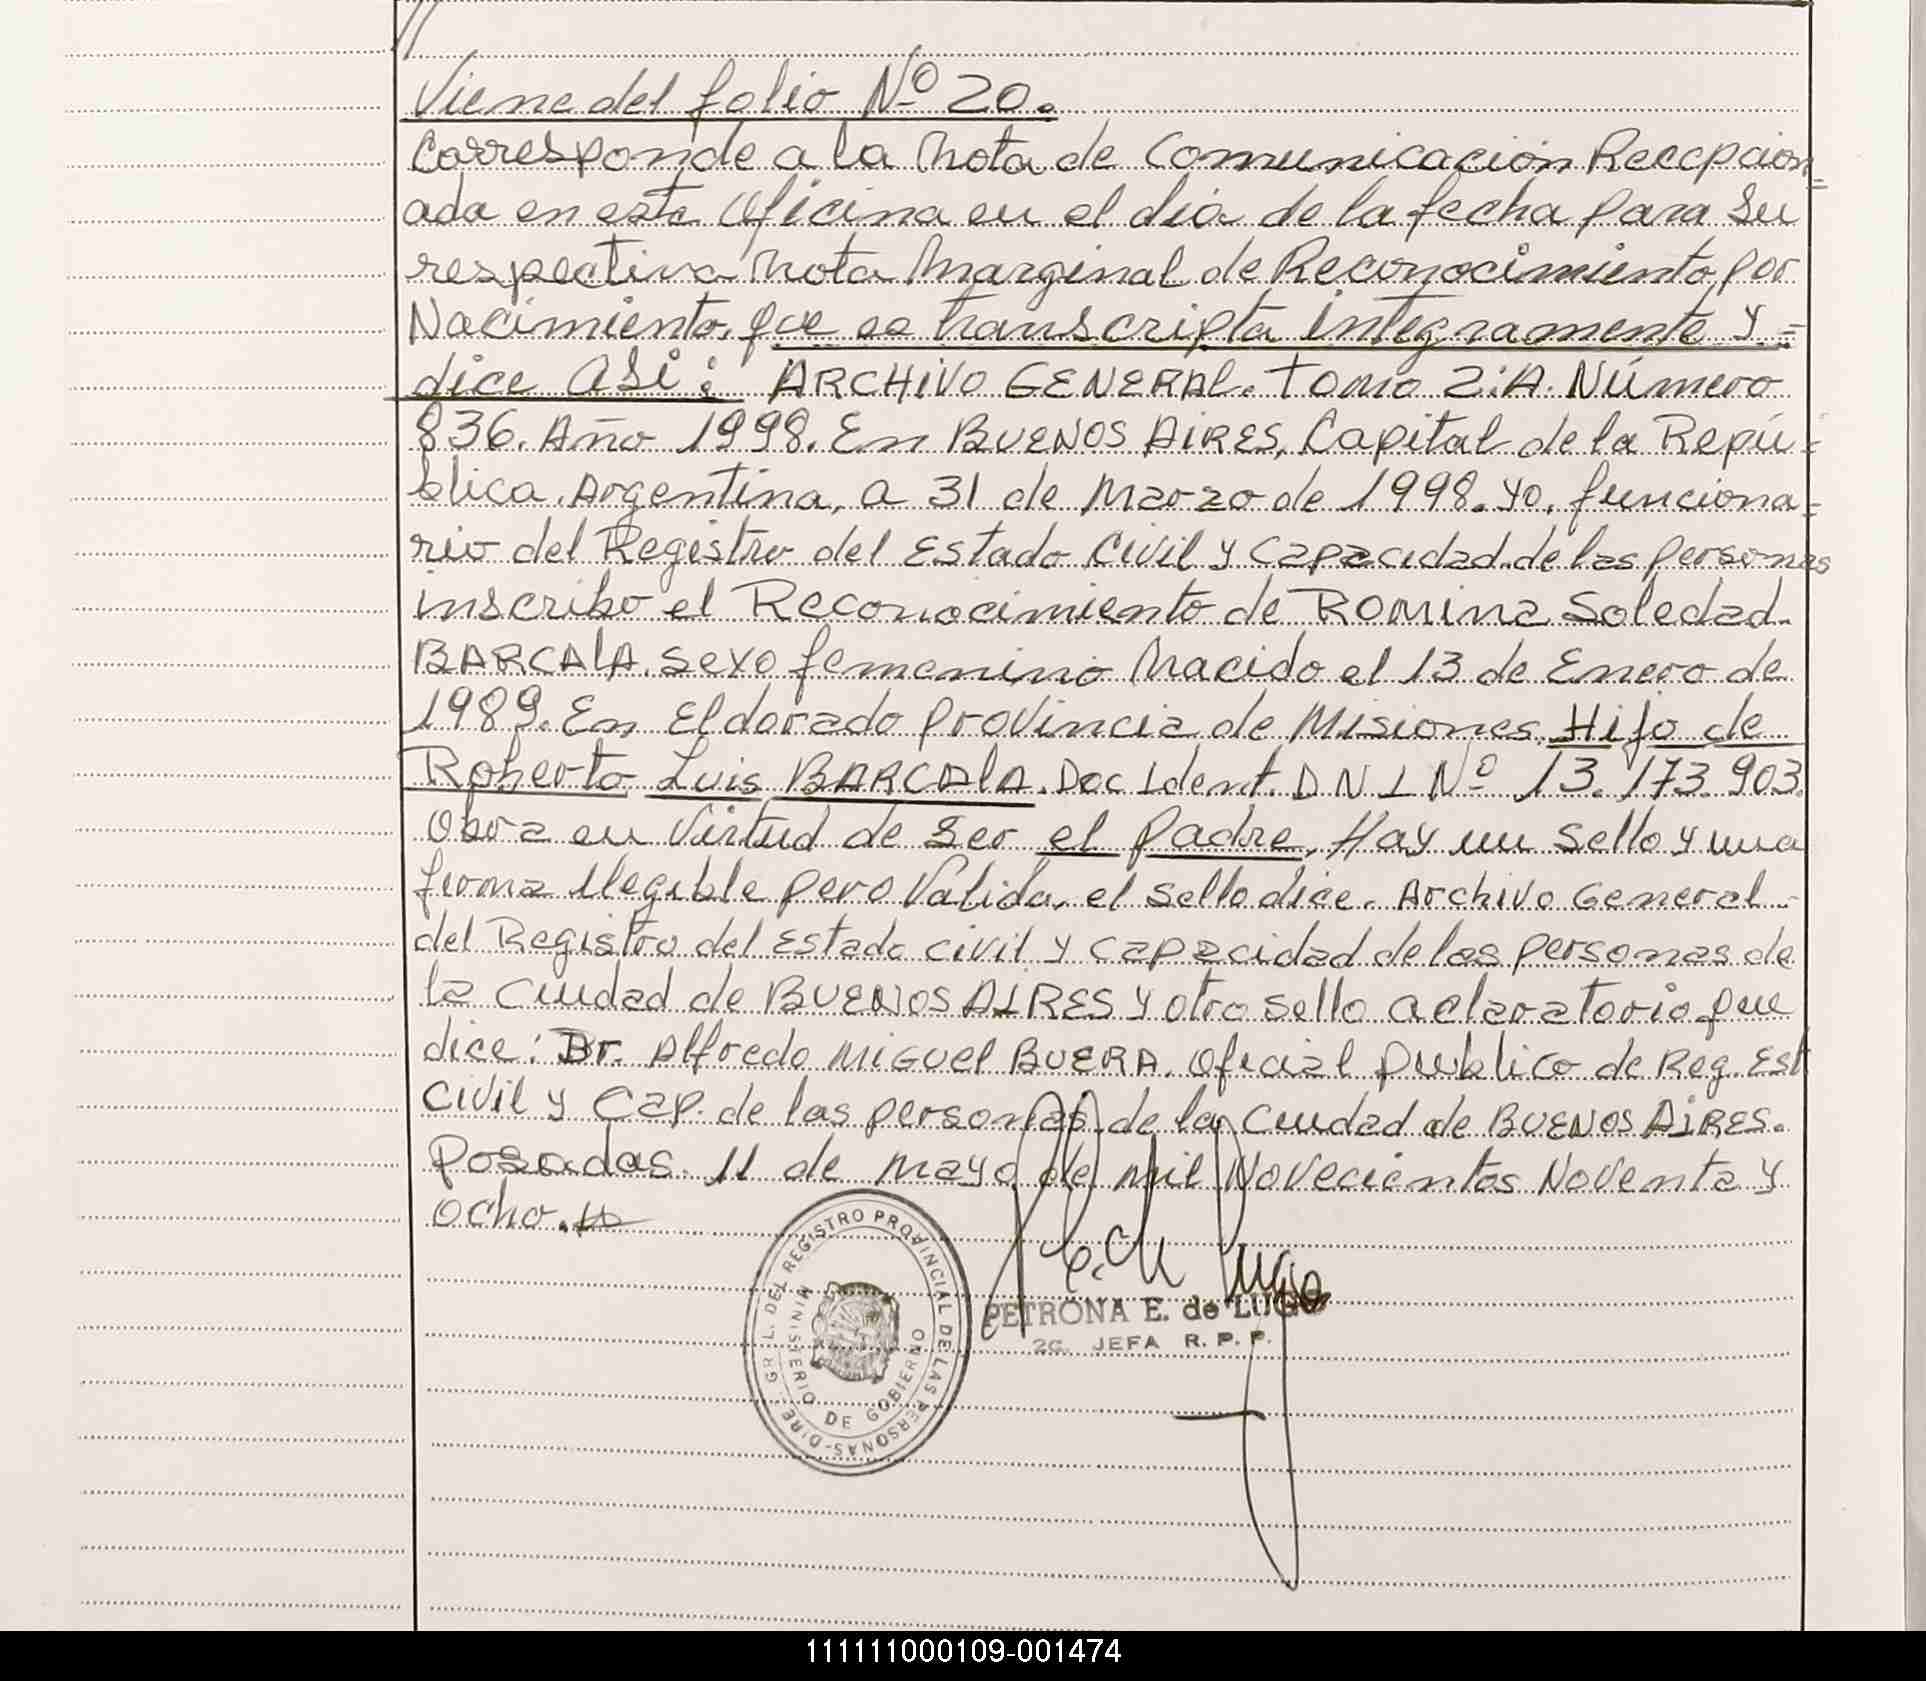 Viene del folio Nº 20.
Corresponde a la Nota de Comunicación Recepcion=
ada en esta Oficina en el dia de la fecha para su
respectiva Nota Marginal de Reconocimiento por
Nacimiento, que es transcripta integramente y =
dice asi: ARCHIVO GENERAL. Tomo 2:A. Número
836. Año 1998. En BUENOS AIRES, Capital de la Repú=
blica Argentina, a 31 de Marzo de 1998. yo, funciona=
rio del Registro del Estado Civil y Capacidad de las personas
inscribo el Reconocimiento de ROMINA Soledad
BARCALA. sexo femenino Nacido el 13 de Enero de
1989. En Eldorado provincia de Misiones. Hijo de
Roberto Luis BARCALA. Doc Ident. DNI Nº 13.173.903.
Obra en virtud de ser el padre, Hay un sello y una
firma ilegible pero Valida, el sello dice. Archivo General
del Registro del Estado civil y capacidad de las personas de
la Ciudad de BUENOS AIRES y otro sello aclaratorio que
dice: Dr. Alfredo MIGUEL BUERA. Oficial publico de Reg. Est
Civil y Cap. de las personas de la Ciudad de BUENOS AIRES.
Posadas. 11 de mayo de mil Novecientos Noventa y
ocho.
DIRE. GRL. DEL REGISTRO PROVINCIAL DE LAS PERSONAS-
MINISTERIO DE GOBIERNO
PETRONA E. de LUGO
2a. JEFA R. P. P.
111111000109-001474